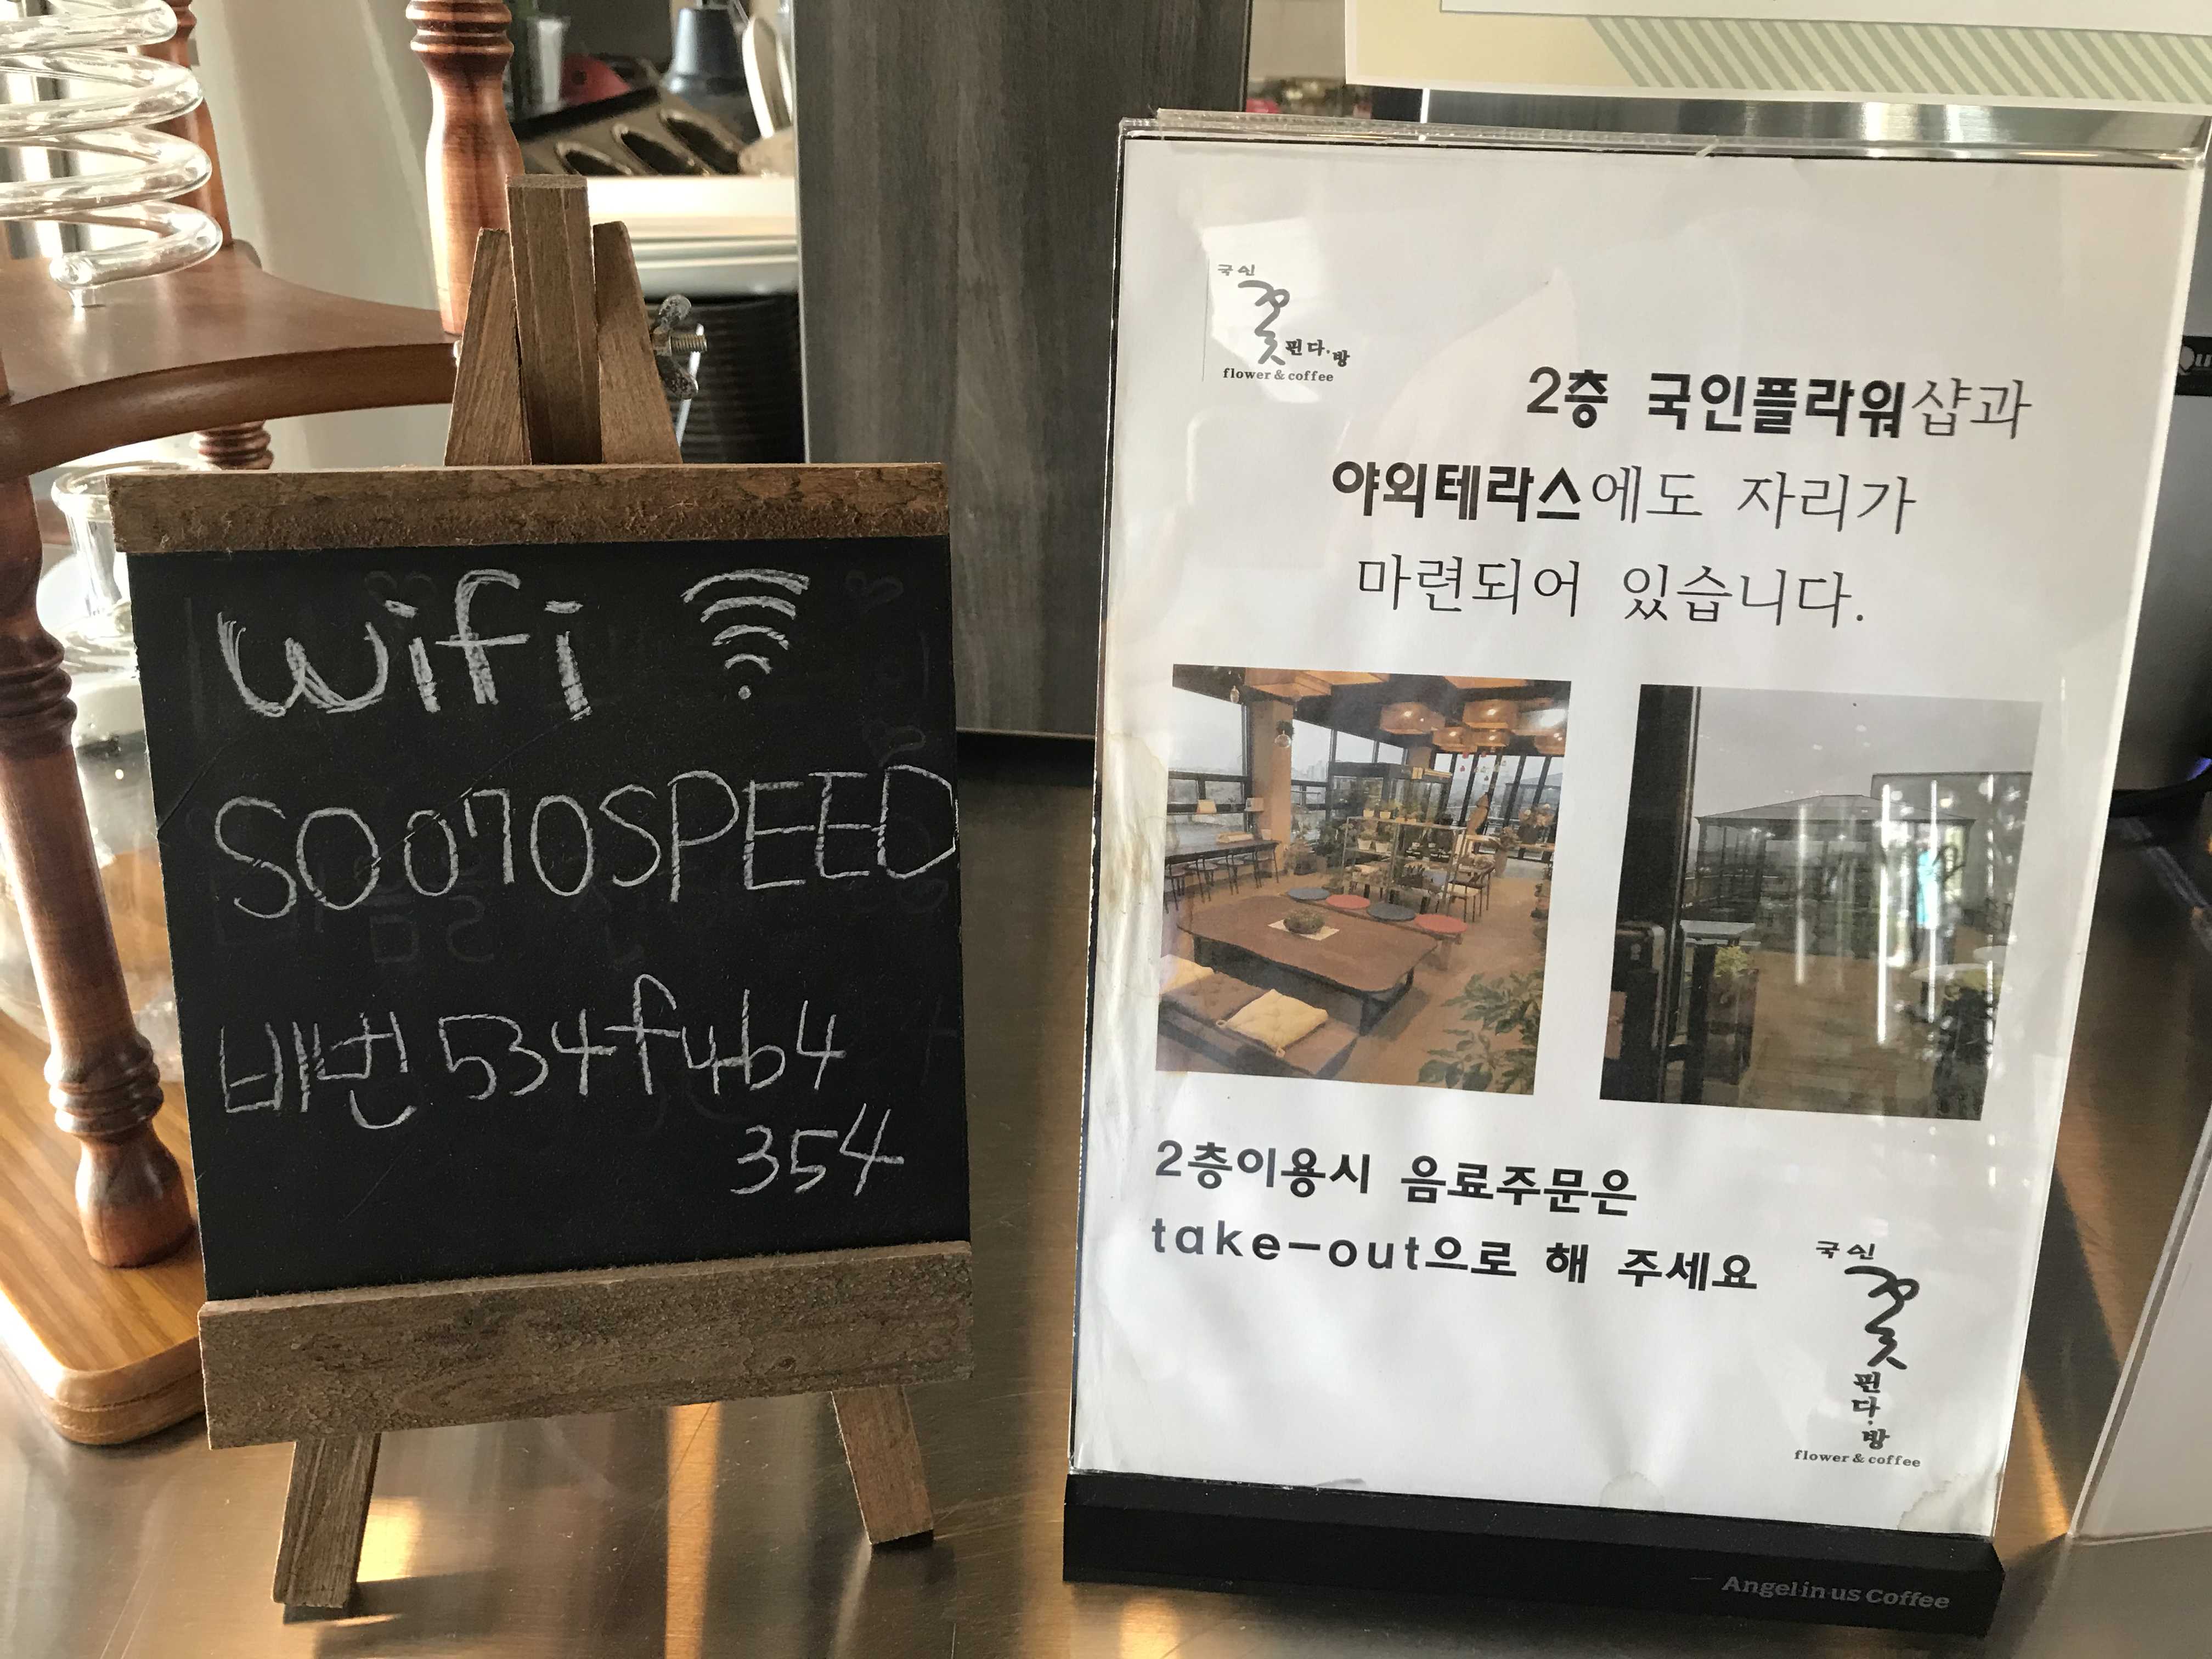 wifi
SO070SPEED
비번 534f4b4
354
국인
꽃
핀다방
flower & coffee
2층 국인플라워샵과
야외테라스에도 자리가
마련되어 있습니다.
2층이용시 음료주문은
take-out으로 해 주세요
국인
꽃
핀
다
방
flower & coffee
Angel-in-us Coffee